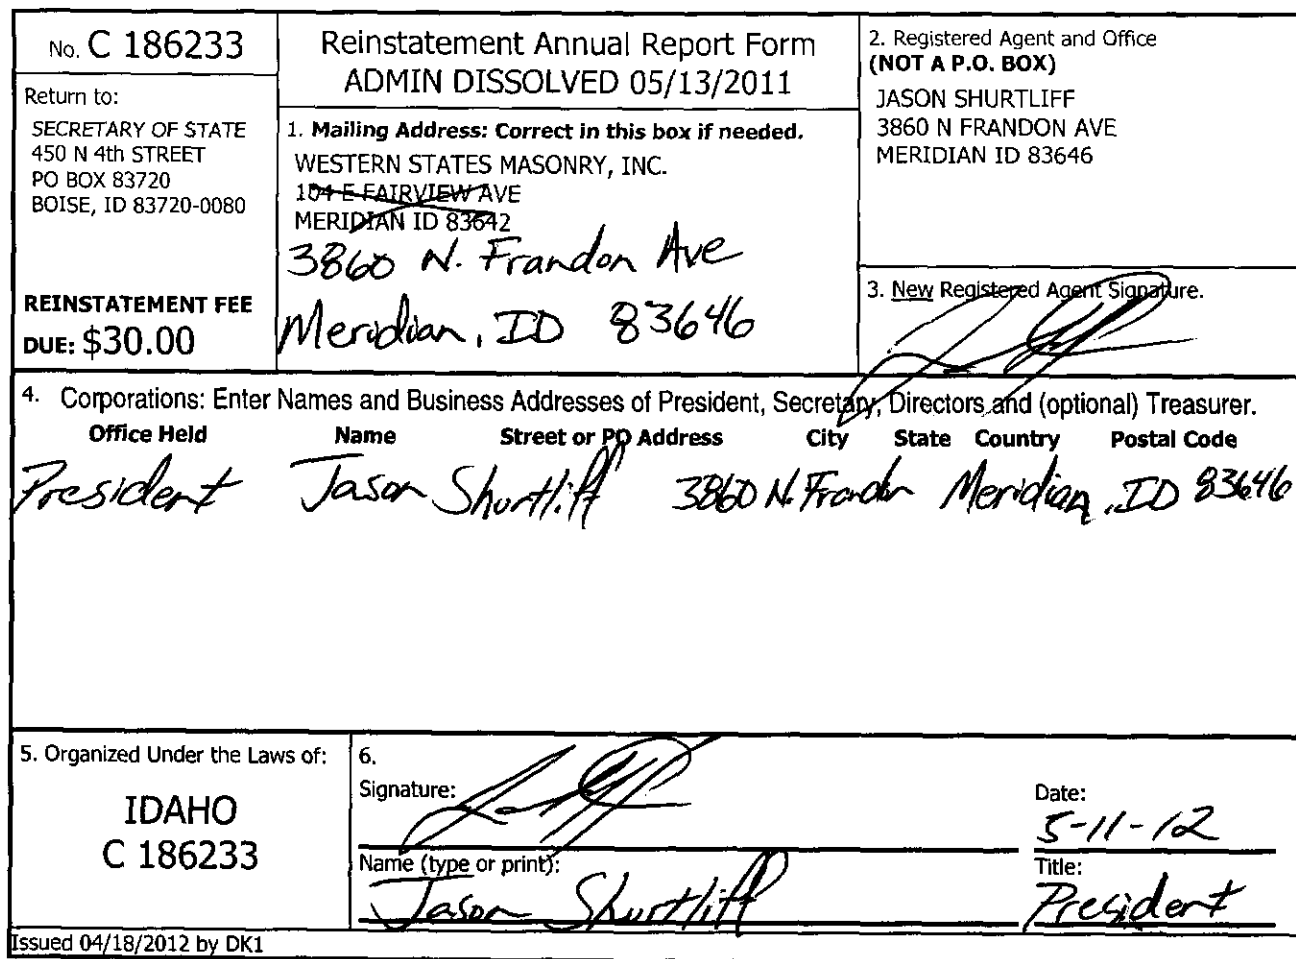 No. C 186233
Return to:
SECRETARY OF STATE
450 N 4th STREET
PO BOX 83720
BOISE, ID 83720-0080
REINSTATEMENT FEE
DUE: $30.00
Reinstatement Annual Report Form
ADMIN DISSOLVED 05/13/2011
1. Mailing Address: Correct in this box if needed.
WESTERN STATES MASONRY, INC.
104 E FAIRVIEW AVE
MERIDIAN ID 83642
3860 N. Frandon Ave
Meridian, ID 83646
2. Registered Agent and Office
(NOT A P.O. BOX)
JASON SHURTLIFF
3860 N FRANDON AVE
MERIDIAN ID 83646
3. New Registered Agent Signature.
4. Corporations: Enter Names and Business Addresses of President, Secretary, Directors and (optional) Treasurer.
Office Held Name Street or PO Address City State Country Postal Code
President Jason Shurtliff 3860 N. Frandon Meridian, ID 83646
5. Organized Under the Laws of:
IDAHO
C 186233
6.
Signature:
Date:
5-11-12
Name (type or print):
Jason Shurtliff
Title:
President
Issued 04/18/2012 by DK1